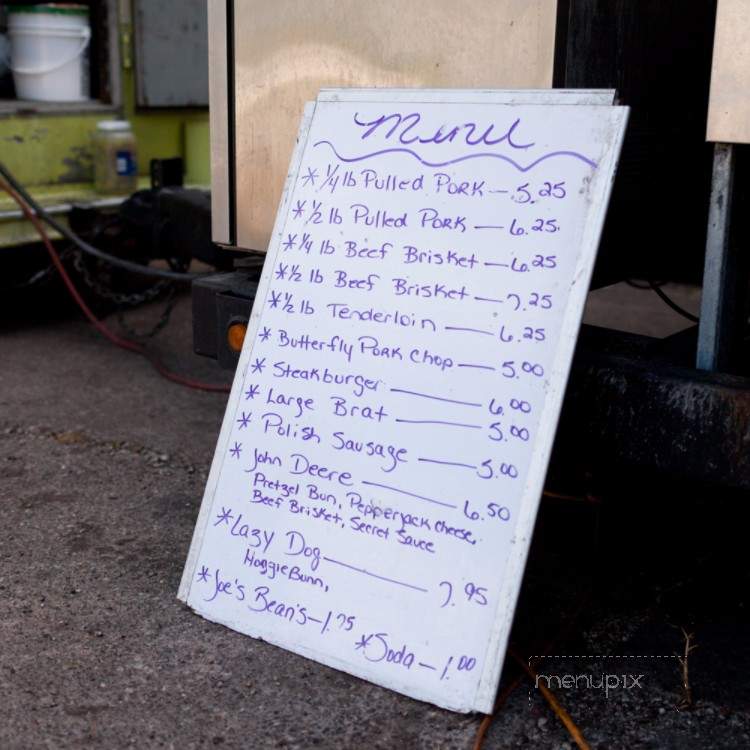 Menu
* 1/4 lb Pulled Pork — 5.25
* 1/2 lb Pulled Pork — 6.25
* 1/4 lb Beef Brisket — 6.25
* 1/2 lb Beef Brisket — 7.25
* 1/2 lb Tenderloin — 6.25
* Butterfly Pork Chop — 5.00
* Steakburger — 6.00
* Large Brat — 5.00
* Polish Sausage — 5.00
* John Deere — 6.50
Pretzel Bun, Pepperjack Cheese,
Beef Brisket, Secret Sauce
* Lazy Dog — 7.95
Hoggie Bunn,
* Joe's Bean's — 1.75
* Soda — 1.00
menupix